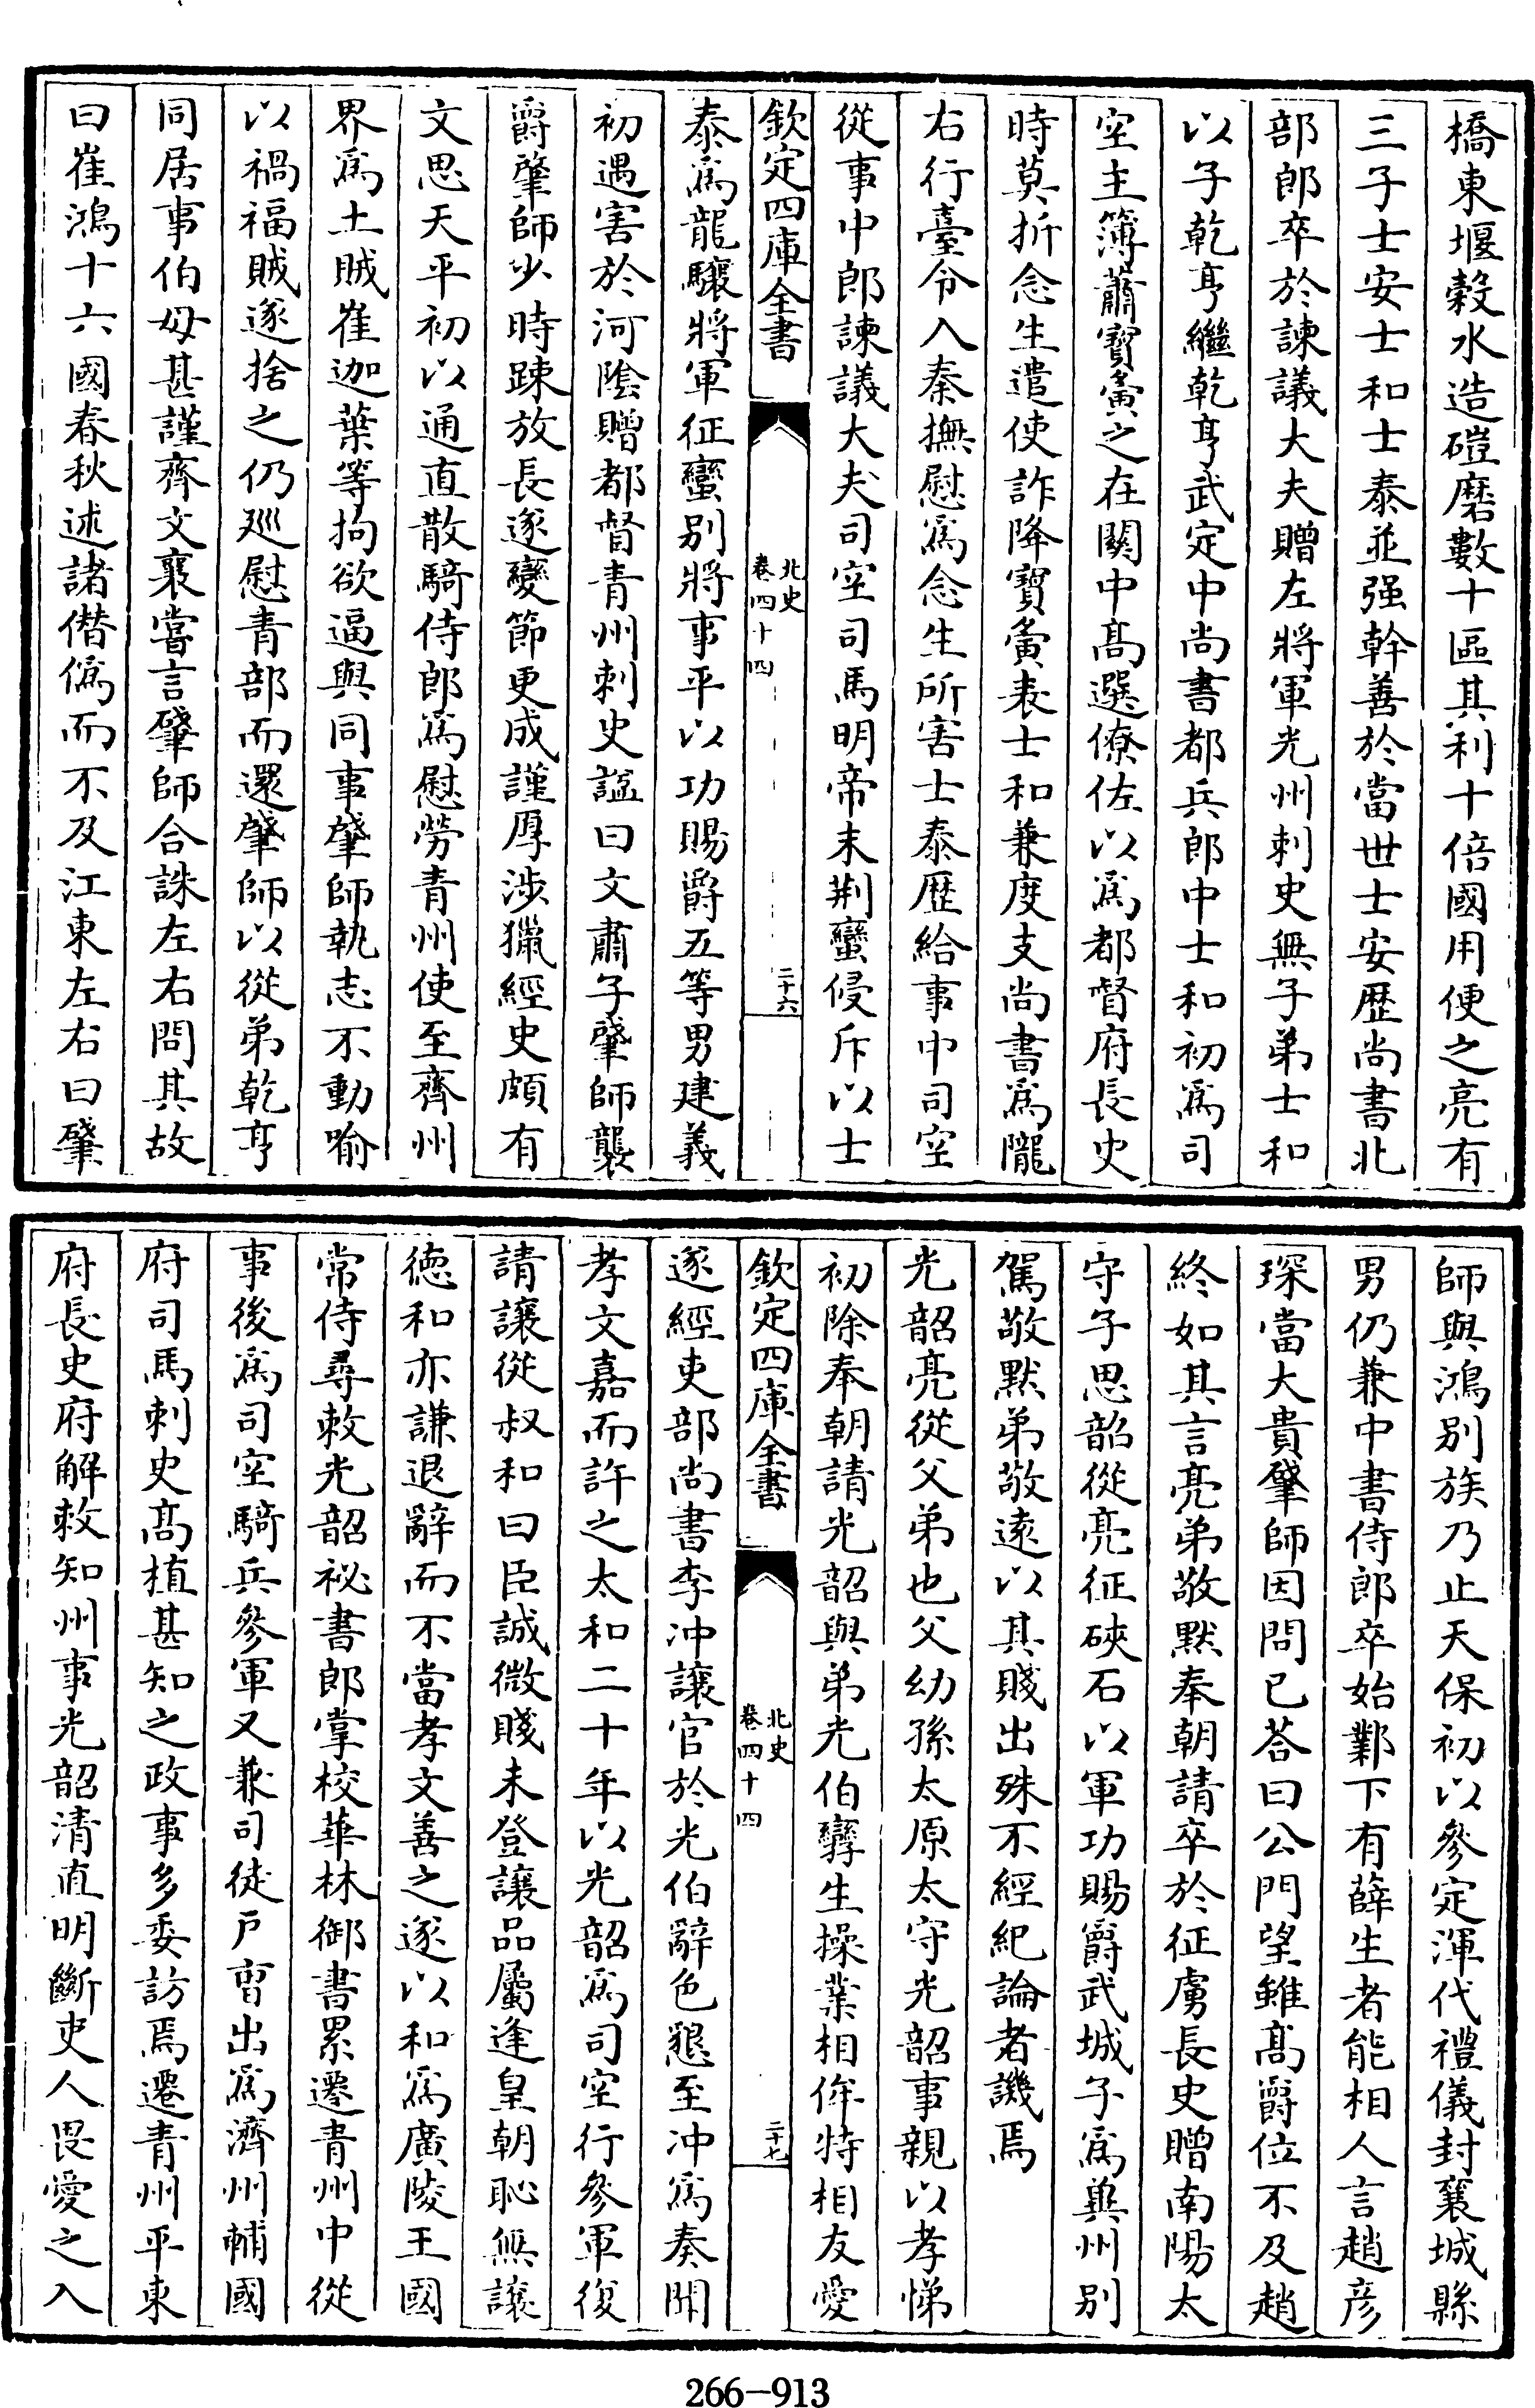 橋東堰穀水造磑磨數十區其利十倍國用便之亮有
三子士安士和士泰並强幹善於當世士安歷尚書北
部郎卒於諫議大夫贈左將軍光州刺史無子弟士和
以子乾亨繼乾亨武定中尚書都兵郎中士和初為司
空主簿蕭寶夤之在關中髙選僚佐以為都督府長史
時莫折念生遣使詐降寶夤表士和兼度支尚書為隴
右行臺令入秦撫慰為念生所害士泰歷給事中司空
從事中郎諫議大夫司空司馬明帝末荆蠻侵斥以士
欽定四庫全書
北史
卷四十四
二十六
泰為龍驤將軍征蠻别將事平以功賜爵五等男建義
初遇害於河隂贈都督青州刺史諡曰文肅子肇師襲
爵肇師少時踈放長遂變節更成謹厚涉獵經史頗有
文思天平初以通直散騎侍郎為慰勞青州使至齊州
界為土賊崔迦葉等拘欲逼與同事肇師執志不動喻
以禍福賊遂捨之仍廵慰青部而還肇師以從弟乾亨
同居事伯母甚謹齊文襄嘗言肇師合誅左右問其故
曰崔鴻十六國春秋述諸僣偽而不及江東左右曰肇
師與鴻别族乃止天保初以參定渾代禮儀封襄城縣
男仍兼中書侍郎卒始鄴下有薛生者能相人言趙彦
琛當大貴肇師因問已荅曰公門望雖髙爵位不及趙
終如其言亮弟敬默奉朝請卒於征虜長史贈南陽太
守子思韶從亮征硤石以軍功賜爵武城子為冀州别
駕敬默弟敬逺以其賤出殊不經紀論者譏焉
光韶亮從父弟也父幼孫太原太守光韶事親以孝悌
初除奉朝請光韶與弟光伯孿生操業相侔特相友愛
欽定四庫全書
北史
卷四十四
二十七
遂經吏部尚書李冲讓官於光伯辭色懇至冲為奏聞
孝文嘉而許之太和二十年以光韶為司空行參軍復
請讓從叔和曰臣誠微賤未登讓品屬逢皇朝恥無讓
德和亦謙退辭而不當孝文善之遂以和為廣陵王國
常侍尋敕光韶祕書郎掌校華林御書累遷青州中從
事後為司空騎兵參軍又兼司徒戸曺出為濟州輔國
府司馬刺史髙植甚知之政事多委訪焉遷青州平東
府長史府解敕知州事光韶清直明斷吏人畏愛之入
266-913